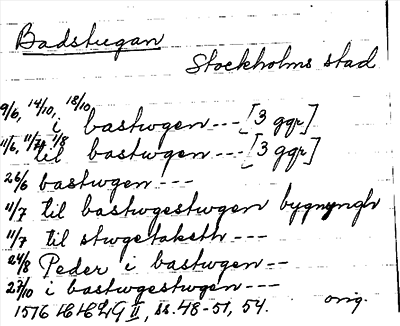 Badstugan
Stockholms stad
9/6, 14/10, 18/10
i bastwgen --- [3 ggr]
11/6, 11/7, 7/8
til bastwgen --- [3 ggr]
26/6 bastwgen ---
11/7 til bastwgestwgen bygnyngh
11/7 til stwgetaketh ---
24/8 Peder i bastwgen --
27/10 i bastwgestwgen ---
1516 HH II, ss. 48-51, 54. orig.